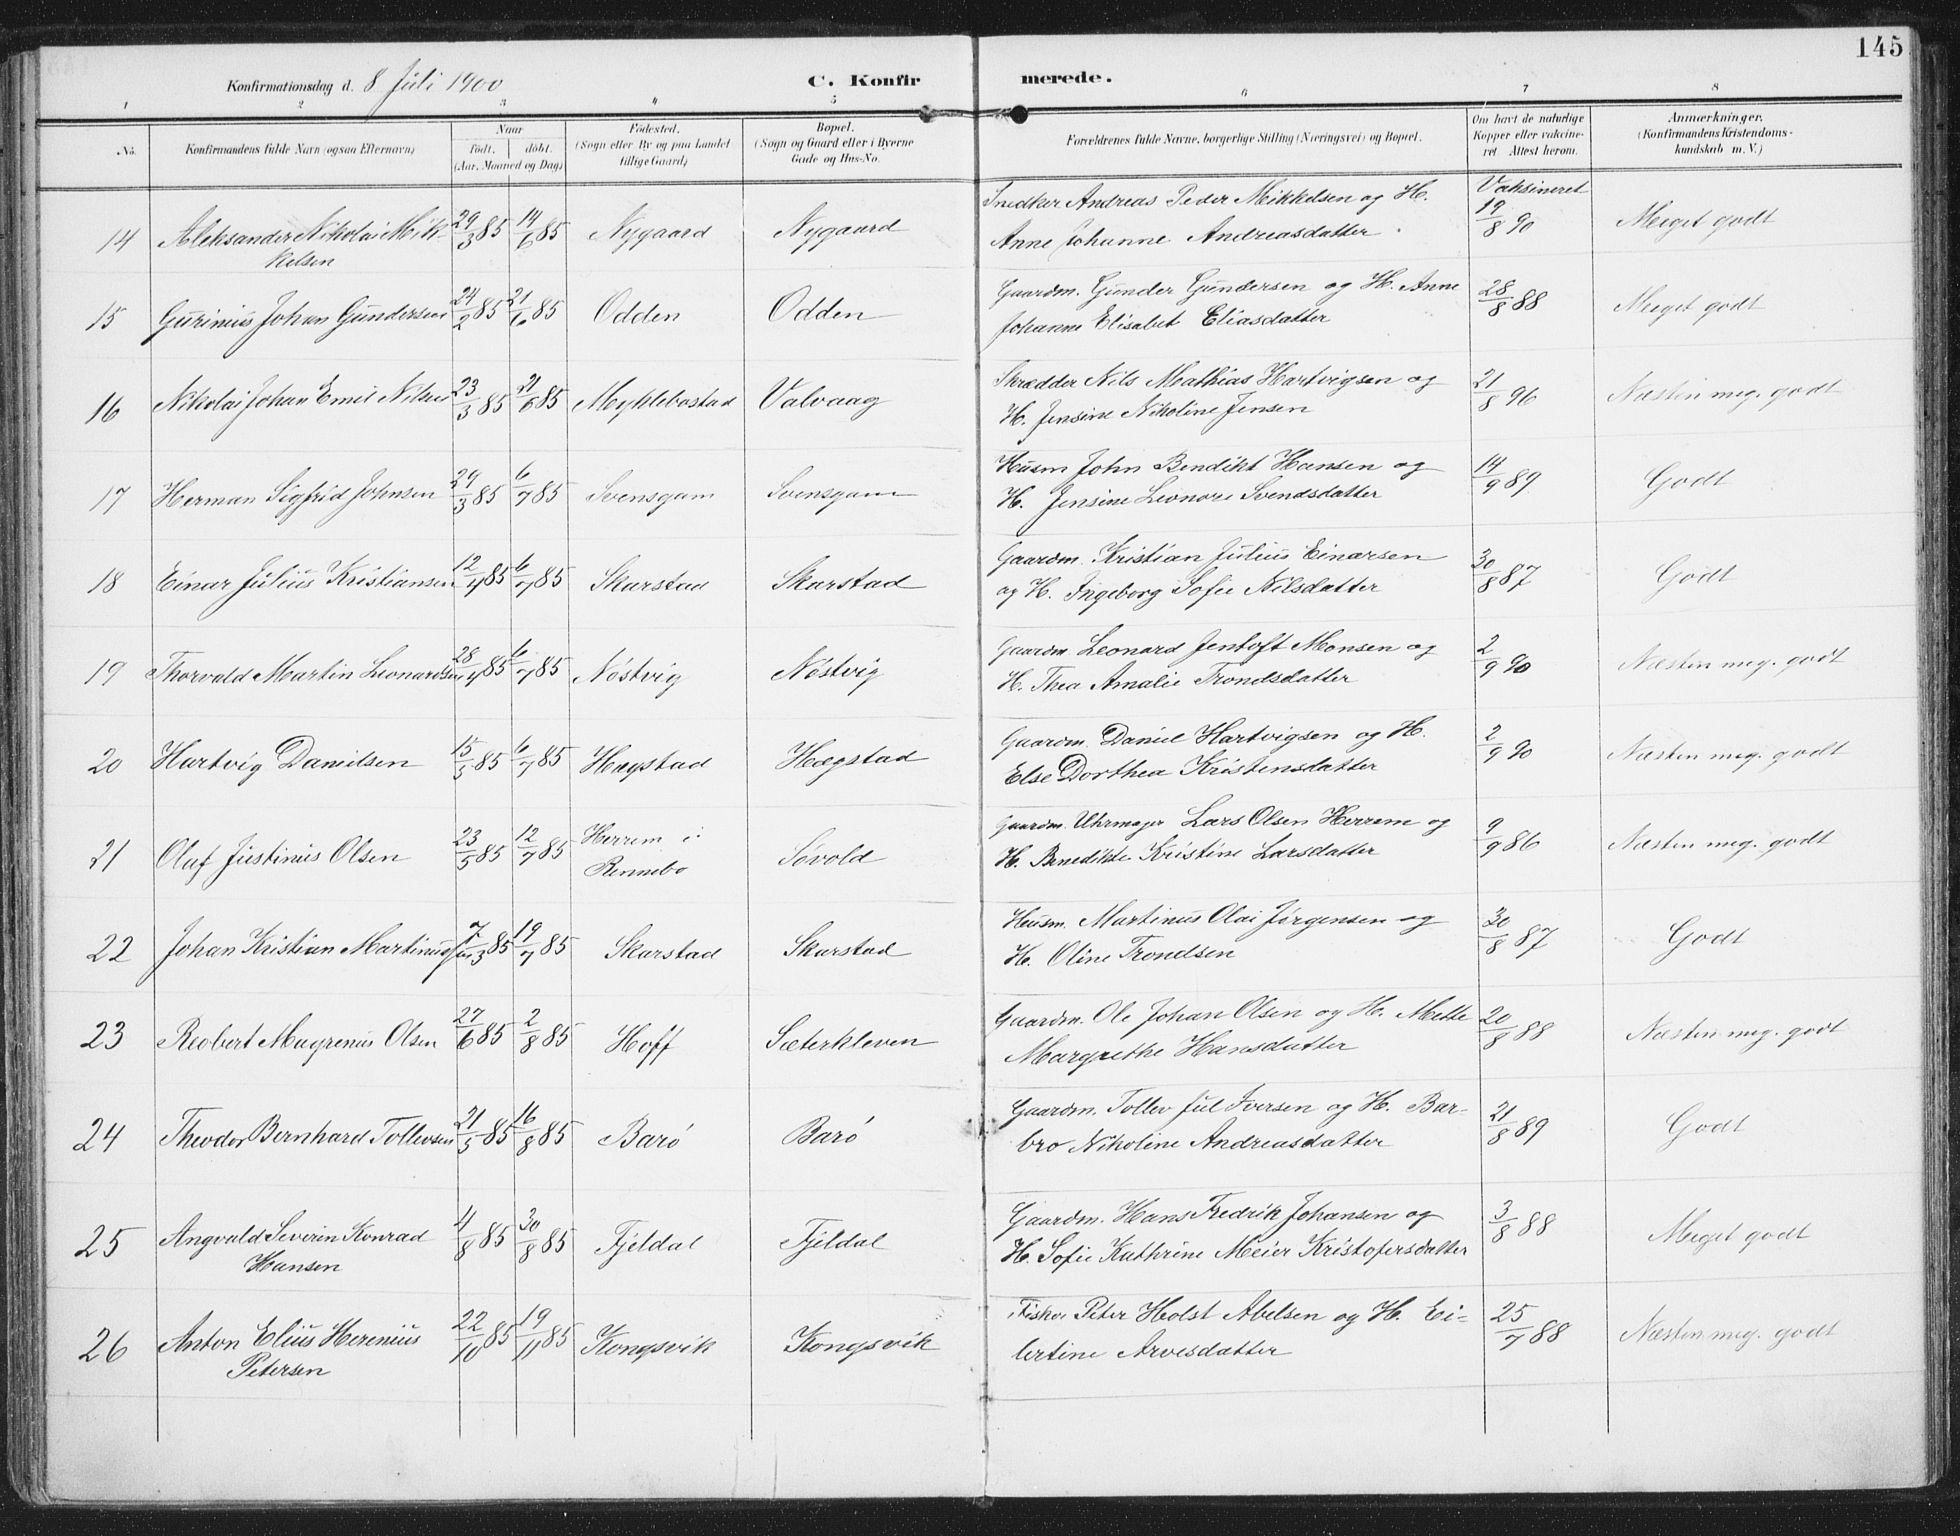 145
Konfirmationsdag d. 8 Juli 1900
C. Konfirmerede.
1 2 3 4 5 6 7 8
No.
Konfirmandens fulde Navn (ogsaa Efternavn)
Naar
født. døbt.
(Aar, Maaned og Dag)
Fødested.
(Sogn eller By og paa Landet
tillige Gaard)
Bopæl.
(Sogn og Gaard eller i Byerne
Gade og Hus-No.
Forældrenes fulde Navne, borgerlige Stilling (Næringsvei) og Bopæl.
Om havt de naturlige
Kopper eller vakcine-
ret Attest herom.
Anmærkninger.
(Konfirmandens Kristendoms-
kundskab m. V.)
14 Aleksander Nikolai Mik- 29/3 85 14/6 85 Nygaard Nygaard Snedker Andreas Peder Mikkelsen og H. Vaksineret 19/8 90 Meget godt
kelsen Anne Johanne Andreasdatter
15 Gurinius Johan Gundersen 24/2 85 21/6 85 Odden Odden Gaardm. Gunder Gundersen og H. Anne 28/8 88 Meget godt
Johanne Elisabet Eliasdatter
16 Nikolai Johan Emil Nilsen 23/3 85 21/6 85 Myklebostad Valvaag Skrædder Nils Mathias Hartvigsen og 21/8 96 Næsten meg. godt
H. Jensine Nikoline Jensen
17 Herman Sigfrid Johnsen 29/3 85 6/7 85 Svensgam Svensgam Husm John Bendikt Hansen og 14/9 89 Godt
H. Jensine Leonore Svendsdatter
18 Einar Julius Kristiansen 12/4 85 6/7 85 Skarstad Skarstad Gaardm. Kristian Julius Einarsen 30/8 87 Godt
og H. Ingeborg Sofie Nilsdatter
19 Thorvald Martin Leonardsen 28/4 85 6/7 85 Nøstvig Nøstvig Gaardm Leonard Jentoft Monsen og 2/9 90 Næsten meg. godt
H. Thea Amalie Trondsdatter
20 Hartvig Danielsen 15/5 85 6/7 85 Hægstad Hægstad Gaardm. Daniel Hartvigsen og H. 2/9 90 Næsten meg. godt
Else Dorthea Kristensdatter
21 Olaf Justinus Olsen 23/5 85 12/7 85 Herrem i Søvold Gaardm. Uhrmager Lars Olsen Herrem og 9/9 86 Næsten meg. godt
Rennebo H. Benedikte Kristine Larsdatter
22 Johan Kristian Martinussen 7/3 85 19/7 85 Skarstad Skarstad Husm. Martinus Olai Jørgensen og 30/8 87 Godt
H. Oline Trondsen
23 Reobert Magrenus Olsen 27/6 85 2/8 85 Hoff Sæterkleven Gaardm. Ole Johan Olsen og H. Mette 20/8 88 Næsten meg. godt
Margrethe Hansdatter
24 Theodor Bernhard Tollevsen 21/5 85 16/8 85 Barø Barø Gaardm. Tollev Jul Iversen og H. Bar- 21/8 89 Godt
bro Nikoline Andreasdatter
25 Angvald Severin Konrad 4/8 85 30/8 85 Fjeldal Fjeldal Gaardm. Hans Fredrik Johansen og 3/8 88 Meget godt
Hansen H. Sofie Kathrine Meier Kristofersdatter
26 Anton Elius Herenius 22/10 85 19/11 85 Kongsvik Kongsvik Fisker Peter Holst Abelsen og H. Ei- 25/7 88 Næsten meg. godt
Petersen lertine Arvesdatter